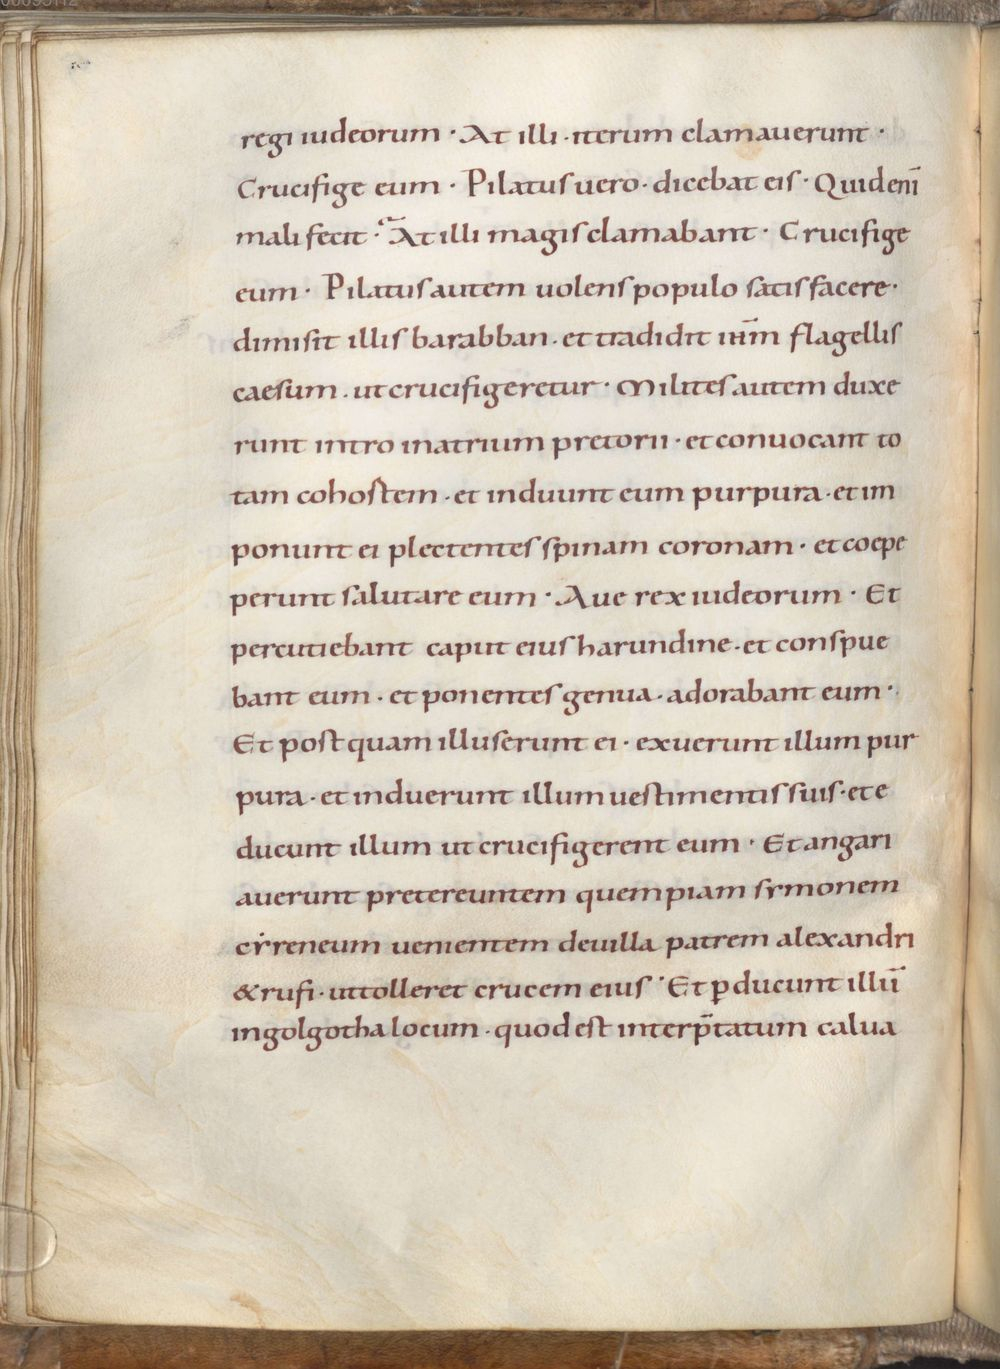 regi iudeorum · At illi · iterum clamauerunt ·
Crucifige eum · Pilatus uero · dicebat eis · Quid eni̅
mali fecit · At illi magis clamabant · Crucifige
eum · Pilatus autem uolens populo satisfacere ·
dimisit illis barabban · et tradidit ih̅m flagellis
caesum · ut crucifigeretur · Milites autem duxe
runt intro in atrium pretorii · et conuocant to
tam cohostem · et induunt eum purpura · et im
ponunt ei plectentes spinam coronam · et coepe
perunt salutare eum · Aue rex iudeorum · Et
percutiebant caput eius harundine · et conspue
bant eum · et ponentes genua · adorabant eum ·
Et postquam illuserunt ei · exuerunt illum pur
pura · et induerunt illum uestimentis suis · et e
ducunt illum ut crucifigerent eum · Et angari
auerunt pretereuntem quempiam symonem
cẏreneum uenientem de uilla patrem alexandri
& rufi · ut tolleret crucem eius · Et ꝑducunt illu̅
in golgotha locum · quod est interp̅tatum calua